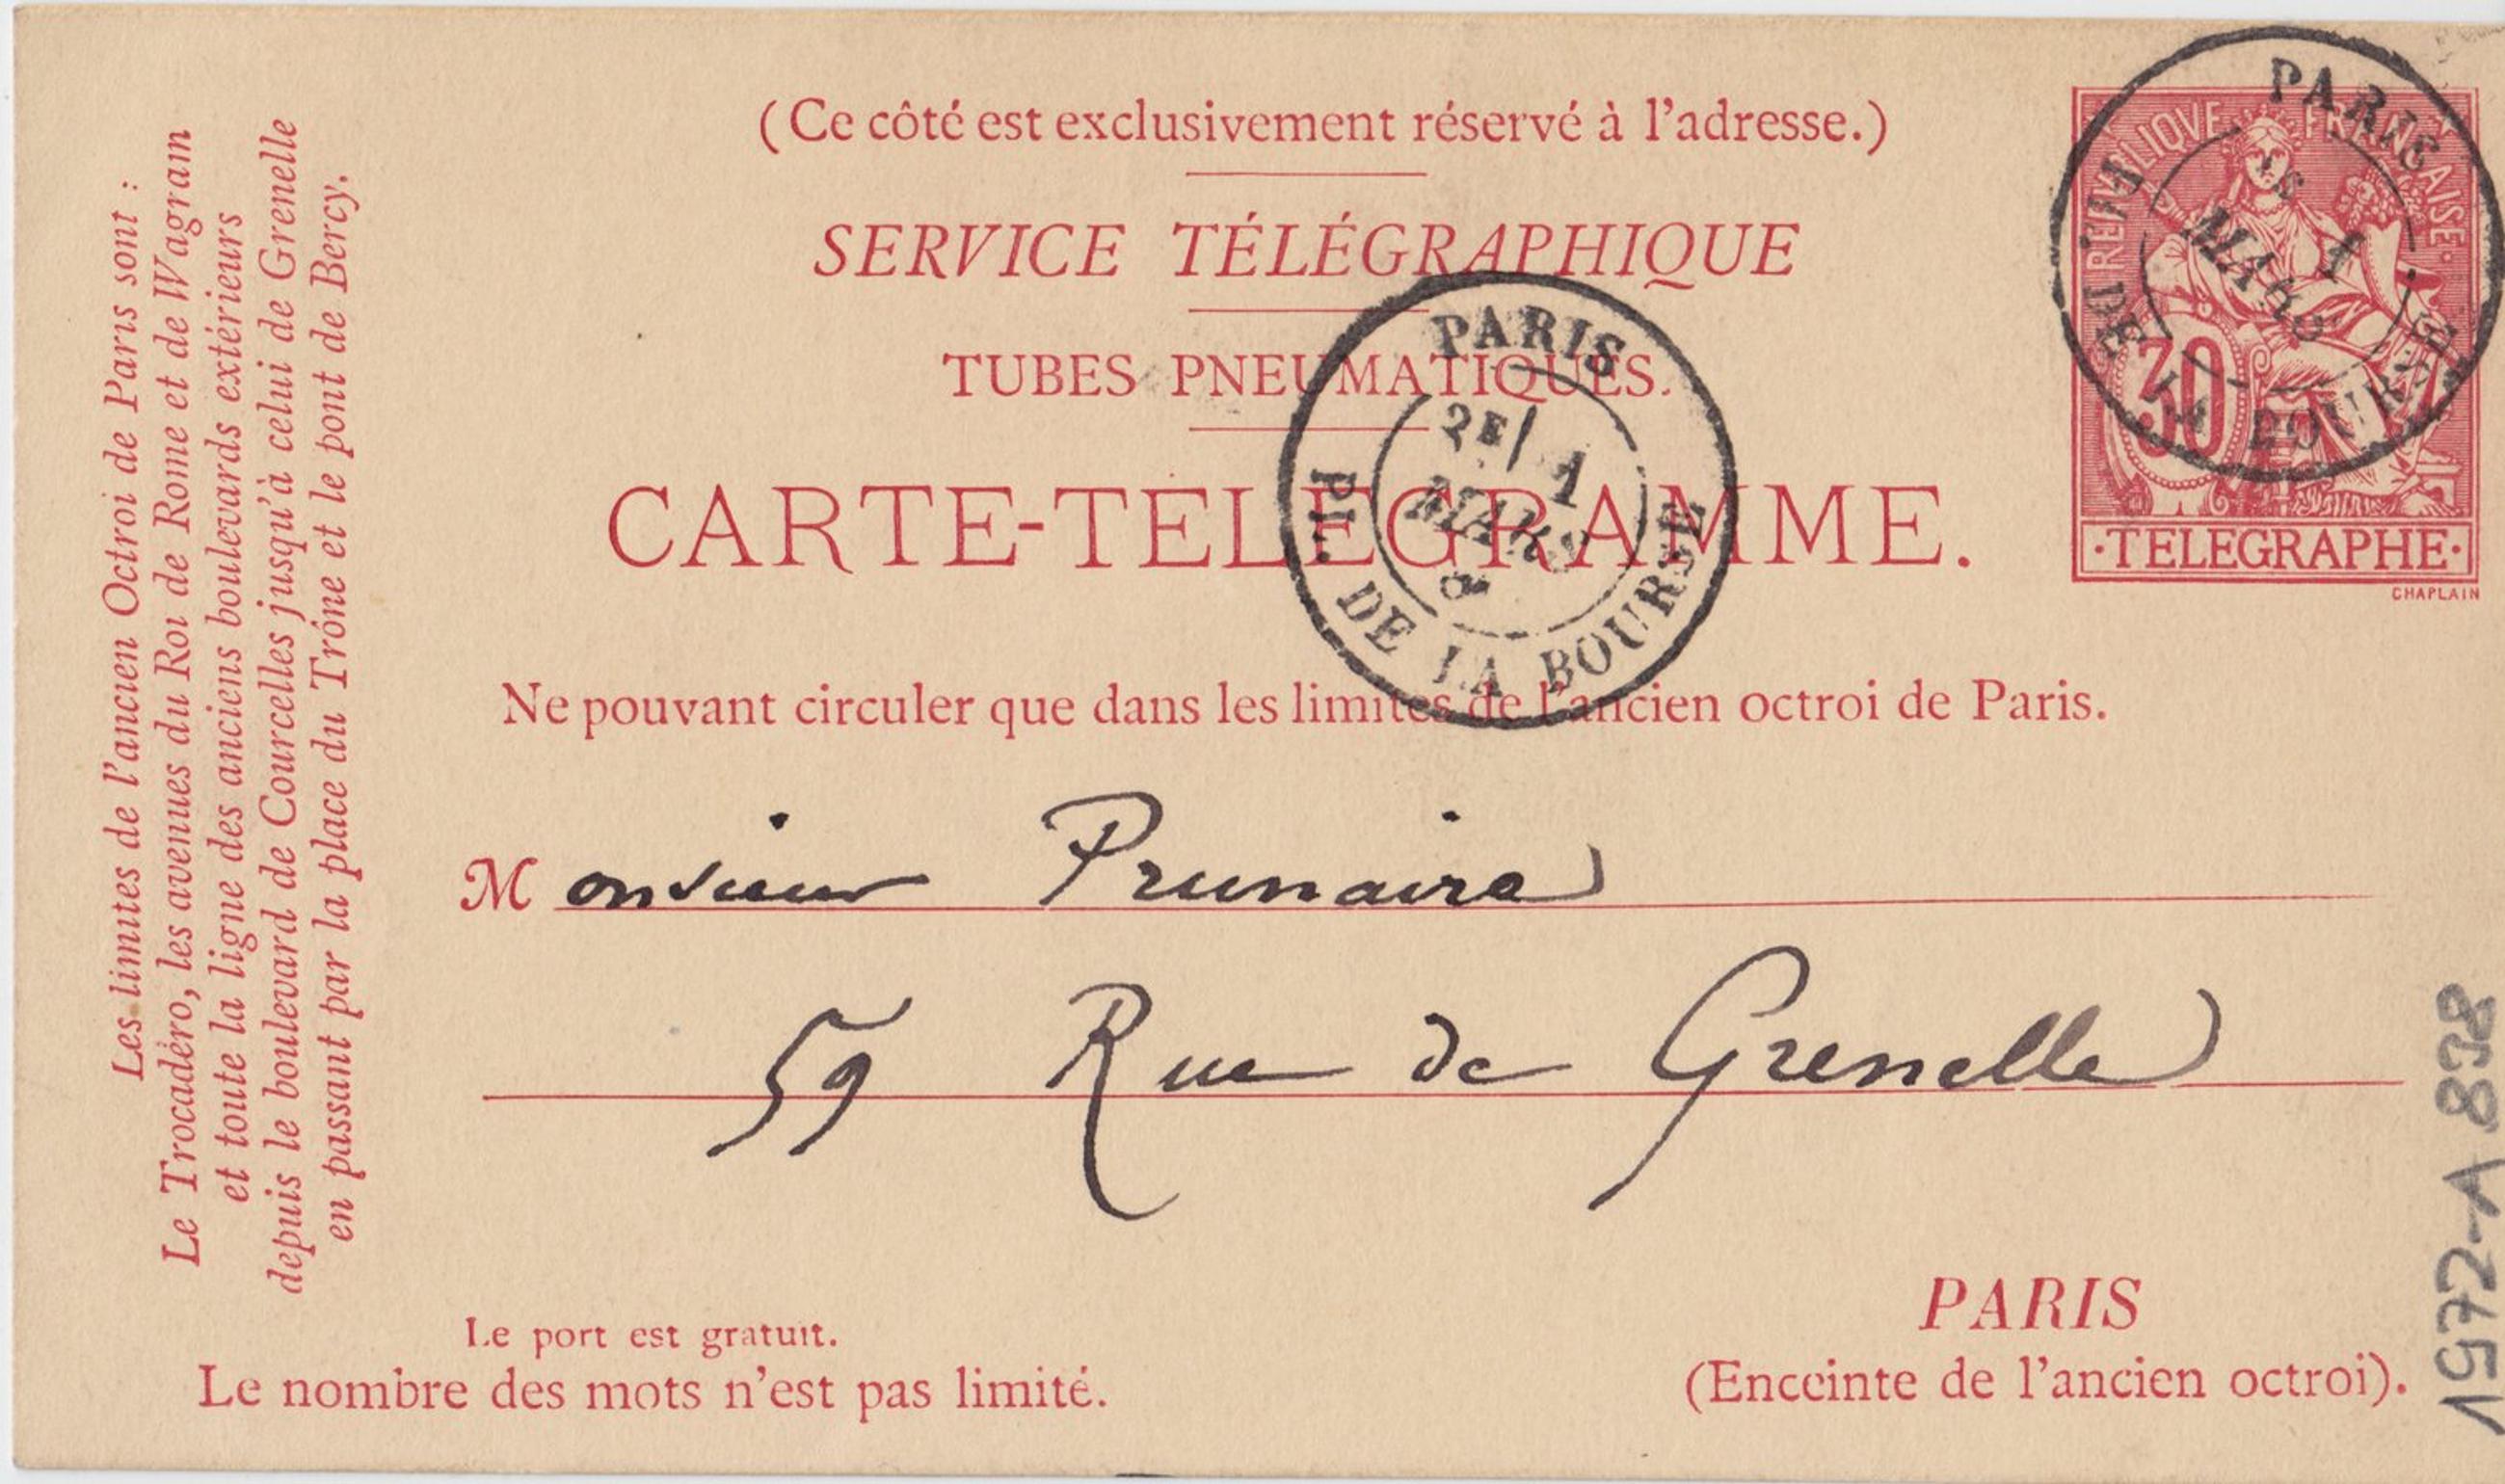 (Ce côté est exclusivement réservé à l'adresse.)
SERVICE TÉLÉGRAPHIQUE
TUBES PNEUMATIQUES.
CARTE-TELEGRAMME.
Ne pouvant circuler que dans les limites de l'ancien octroi de Paris.
Monsieur Prunaire
59 Rue de Grenelle
PARIS
(Enceinte de l'ancien octroi).
Le port est gratuit.
Le nombre des mots n'est pas limité.
Les limites de l'ancien Octroi de Paris sont :
Le Trocadéro, les avenues du Roi de Rome et de Wagram
et toute la ligne des anciens boulevards extérieurs
depuis le boulevard de Courcelles jusqu'à celui de Grenelle
en passant par la place du Trône et le pont de Bercy.
RÉPUBLIQUE FRANÇAISE
30
·TELEGRAPHE·
CHAPLAIN
PARIS
1
MARS
PL. DE LA BOURSE
PARIS
2E/ 1
MARS
PL. DE LA BOURSE
1972-A 838